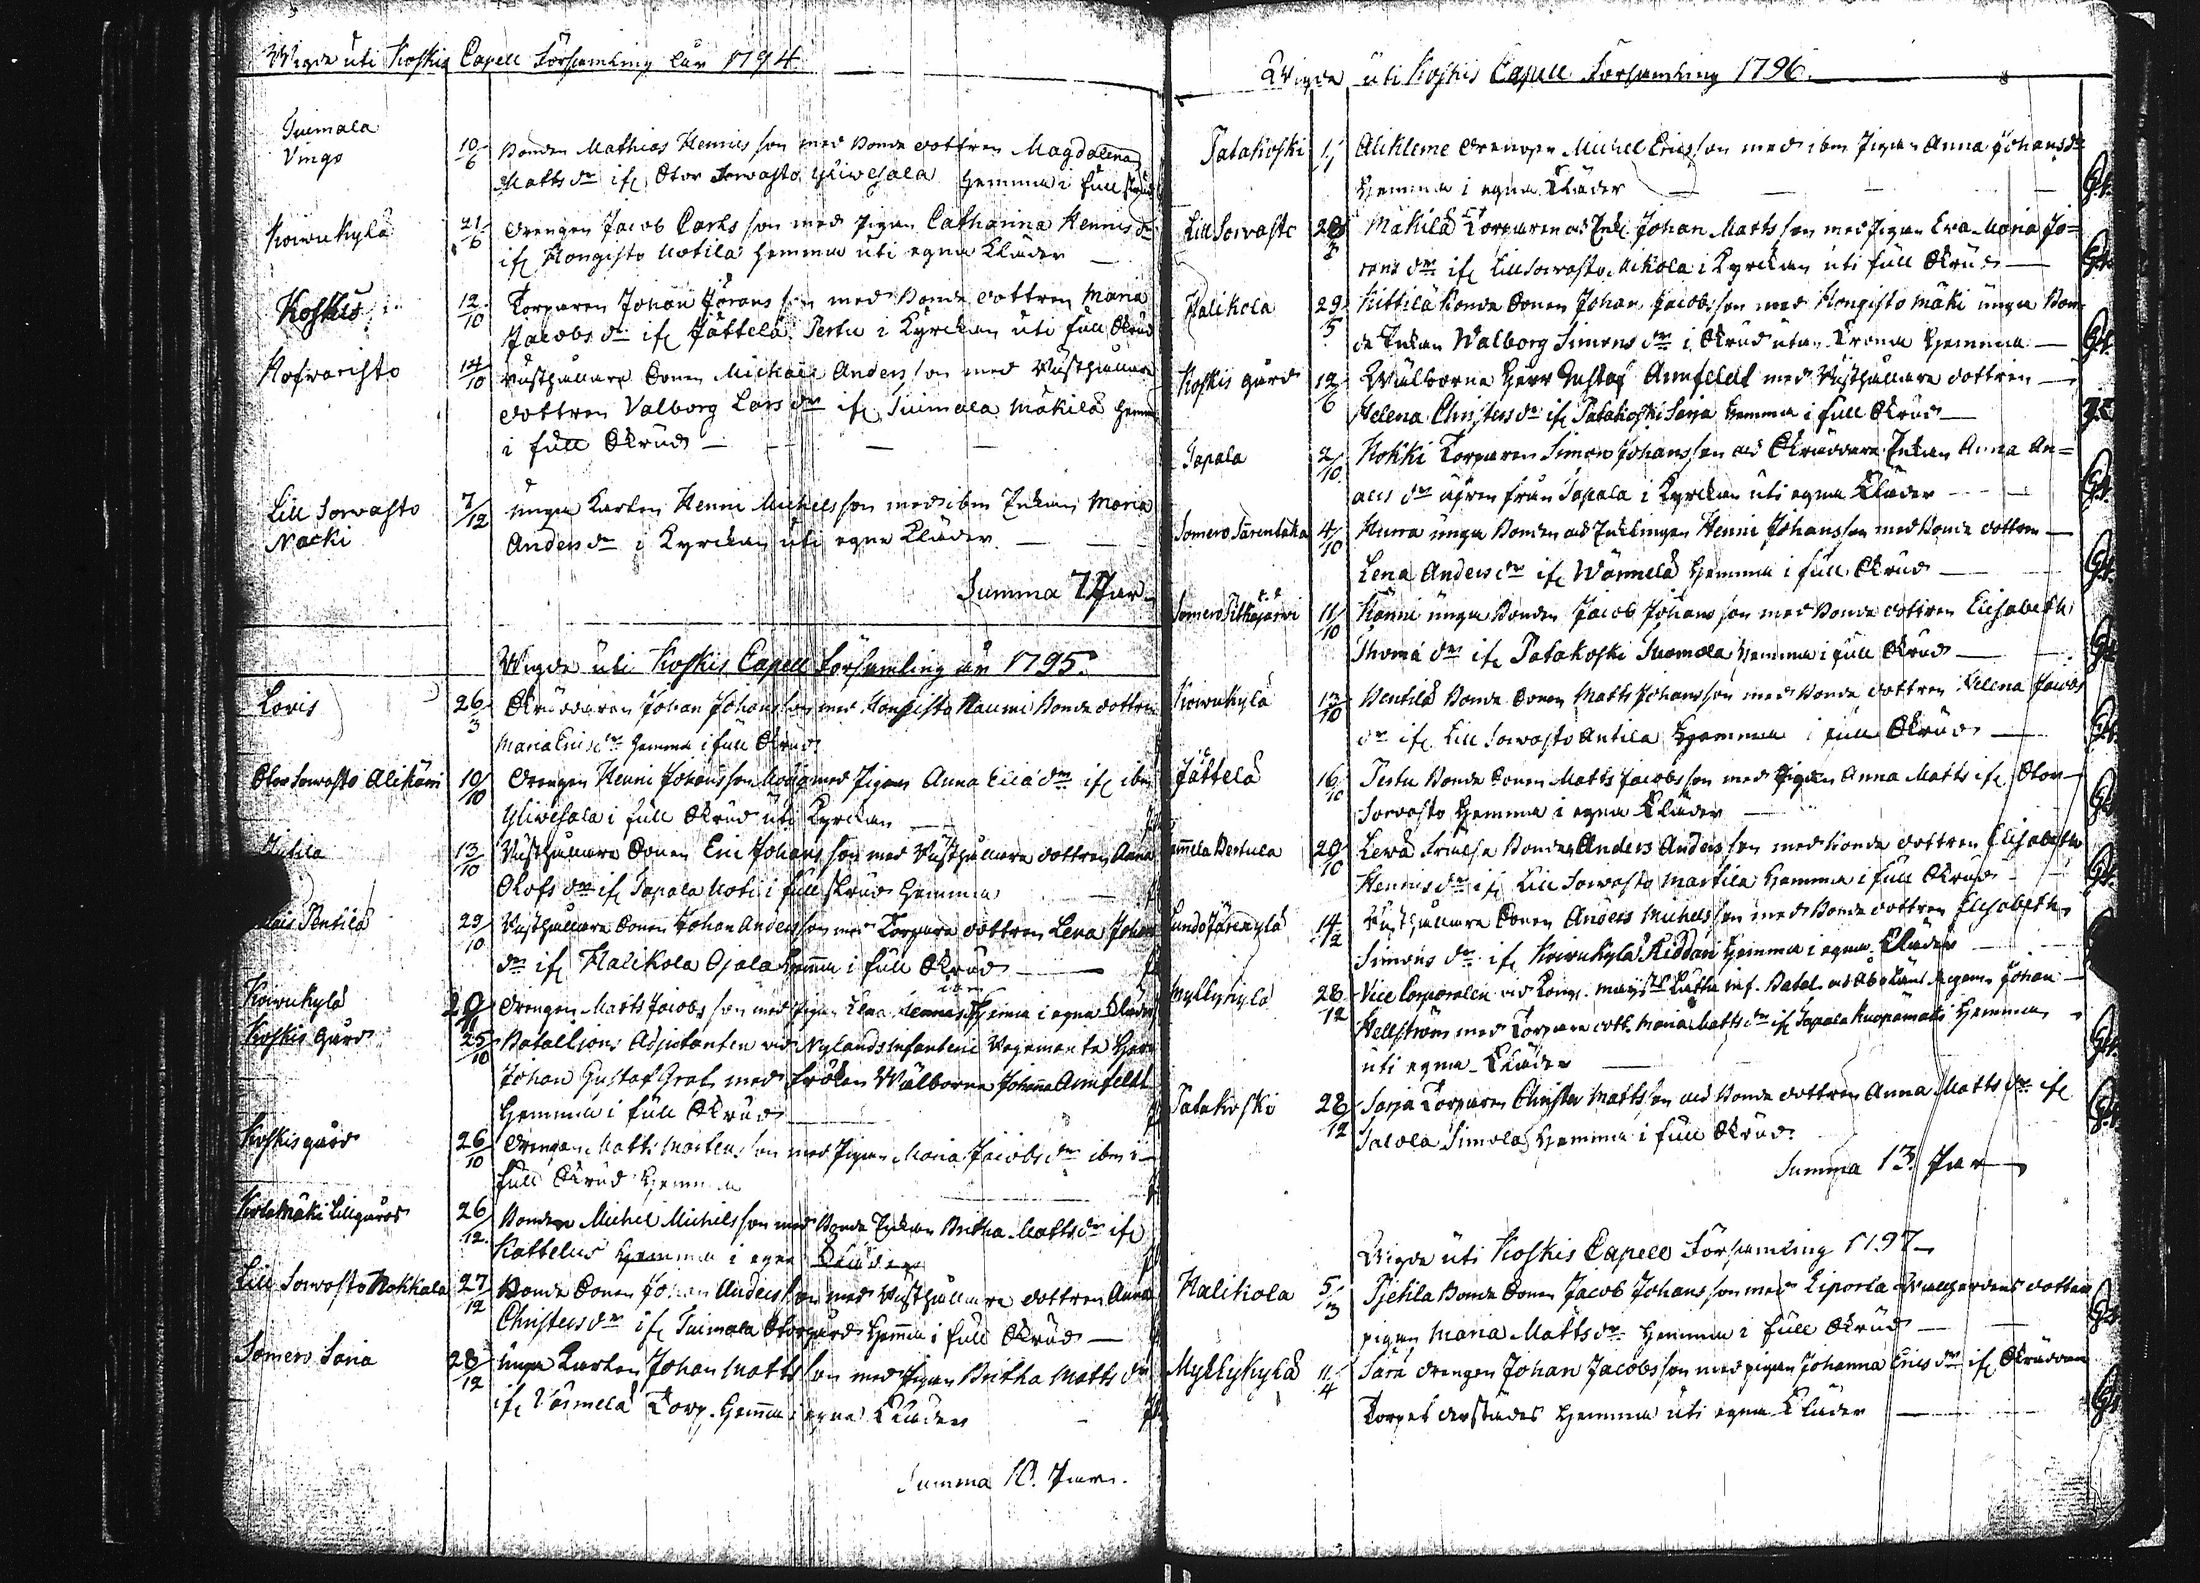 Wigde uti Koskis Capell Församling åår 1794.
Tuimala
Vingo
10/6 Bonden Mathias Hennics son med Bonde dottren Magdalena
Matts dr ifr Stor Sorvasto Yliwesala hemma i full skrud
Koivukylä 21/6 Drengen Jacob Carls son med Pigan Catharina Hennics dr
ifr Hongisto Uotila hemma uti egna Kläder
Koskis 12/10 Torparen Johan Jörans son med Bonde dottren Maria
Jacobs dr ifr Jättelä Pertu i Kyrckan uti full Skrud
Hofvaristo 14/10 Rusthållare Sonen Michael Anders son med Rusthållare
dottren Valborg Lars dr ifr Tuimala Mäkilä hemma
i full Skrud
Lill Sorvasto
Nacki
7/12 unga Karlen Henric Michels son med ibm Enkan Maria
Anders dr i Kyrckan uti egna Kläder
Summa 7 Par
Wigde uti Koskis Capell Församling år 1795.
Sorvis 26/3 Skräddaren Johan Johans son med Hongisto Naumi Bonde dottren
Maria Erics dr hemma i full Skrud
Stor Sorvasto Alikärri 10/10 Drengen Henric Johans son med Pigan Anna Elia dr ifr ibm
Yliwesala i full Skrud uti Kyrckan
13/10 Rusthållare Sonen Eric Johans son med Rusthållare dottren Anna
Olofs dr ifr Tapala Uoti i full skrud hemma
Pentilä 23/10 Rusthållare Sonen Johan Anders son med Torpare dottren Lena Johans
dr ifr Halikola Ojala hemma i full Skrud
Koivukylä 29 Drengen Matts Jacobs son med Pigan Lena Hennics hemma i egna Kläder
Koskis Gård 25/10 Batallions Adjutanten vid Nylands Infanterie Regemente Herr
Johan Gustaf Graf med Fröken Wälborna Johanna Armfeldt
hemma i full Skrud
Koskis gård 26/10 Drengen Matts Mårtens son med Pigan Maria Jacobs dr ibm i
full Skrud hemma
Kortemäki Lillgård 26/12 Bonden Michel Michels son med Bonde Enkan Britha Matts dr ifr
Kattelus hemma i egna Kläder
Lill Sorvasto Hokkala 27/12 Bonde Sonen Johan Anders son med Rusthållare dottren Anna
Christers dr ifr Tuimala Storgård hemma i full Skrud
Somero Saria 28/12 unga Karlen Johan Matts son med Pigan Britha Matts dr
ifr Värmelä Torp hemma i egna Kläder
Summa 10. Par.
Wigde uti Koskis Capell Församling 1796.
Patakoski 1/1 Alikleme Drengen Michel Erics son med ibm Pigan Anna Johans dr
hemma i egna Kläder
Lill Sorvasto 28/2 Mäkilä Torparen och Enkl. Johan Matts son med Pigan Eva Maria Jö=
rans dr ifr Lill Sorvasto Uckola i Kyrckan uti full Skrud
Halikola 29/5 Kittilä Bonde Sonen Johan Jacobs son med Hongisto Mäki unga Bon
de Enkan Walborg Simons dr i Skrud utan Krona hemma
Koskis gård 12/6 Wälborne Herr Gustaf Armfeldt med Rusthållare dottren
Helena Christers dr ifr Patakoski Sarja hemma i full Skrud
Tapala 2/10 Kokki Torparen Simon Johans son och Skräddare Enkan Anna An=
ders dr äfven från Tapala i Kyrckan uti egna Kläder
Somero Särentaka 4/10 Hurra unga Bonden och Enklingen Henric Johans son med Bonde dottren
Lena Anders dr ifr Wärmelä hemma i full Skrud
Somero Pitkäjärvi 11/10 Känni unga Bonden Jacob Johans son med Bonde dottren Elisabeth
Thoma dr ifr Patakoski Tuomola hemma i full Skrud
Koivukylä 13/10 Pentilä Bonde Sonen Matts Johans son med Bonde dottren Helena Jacobs
dr ifr Lill Sorvasto Antila hemma i full Skrud
Jättelä 16/10 Pertu Bonde Sonen Matts Jacobs son med Pigan Anna Matts ifr Stor
Sorvasto hemma i egna Kläder
Pertula 20/10 Lewä Frälse Bonden Anders Anders son med Bonde dottren Elisabeth
Hennics dr ifr Lill Sorvasto Martila hemma i full Skrud
14/12 Rusthållare Sonen Anders Michels son med Bonde dottren Elisabeth
Simons dr ifr Koivukylä Riddari hemma i egna Kläder
Myllykylä 28/12 Vice Corporalen vid Kongl. Majts Lätta inf. Batal. vid Åbo Läns Regem. Johan
Hellström med Torpare dott. Maria Matts dr ifr Tapala Kuopamäki hemma
uti egna Kläder
Patakoski 28/12 Sarja Torparen Christer Matts son och Bonde dottren Anna Matts dr ifr
Talola Simola hemma i full Skrud
Summa 13. Par
Wigde uti Koskis Capell Församling 1797
Halikola 5/3 Pjetila Bonde Sonen Jacob Johans son med Liporla dotter
pigan Maria Matts dr hemma i full Skrud
Myllykylä 11/4 Sara Drengen Johan Jacobs son med pigan Johanna Erics dr ifr Skräddare
Torpet derstädes hemma uti egna Kläder